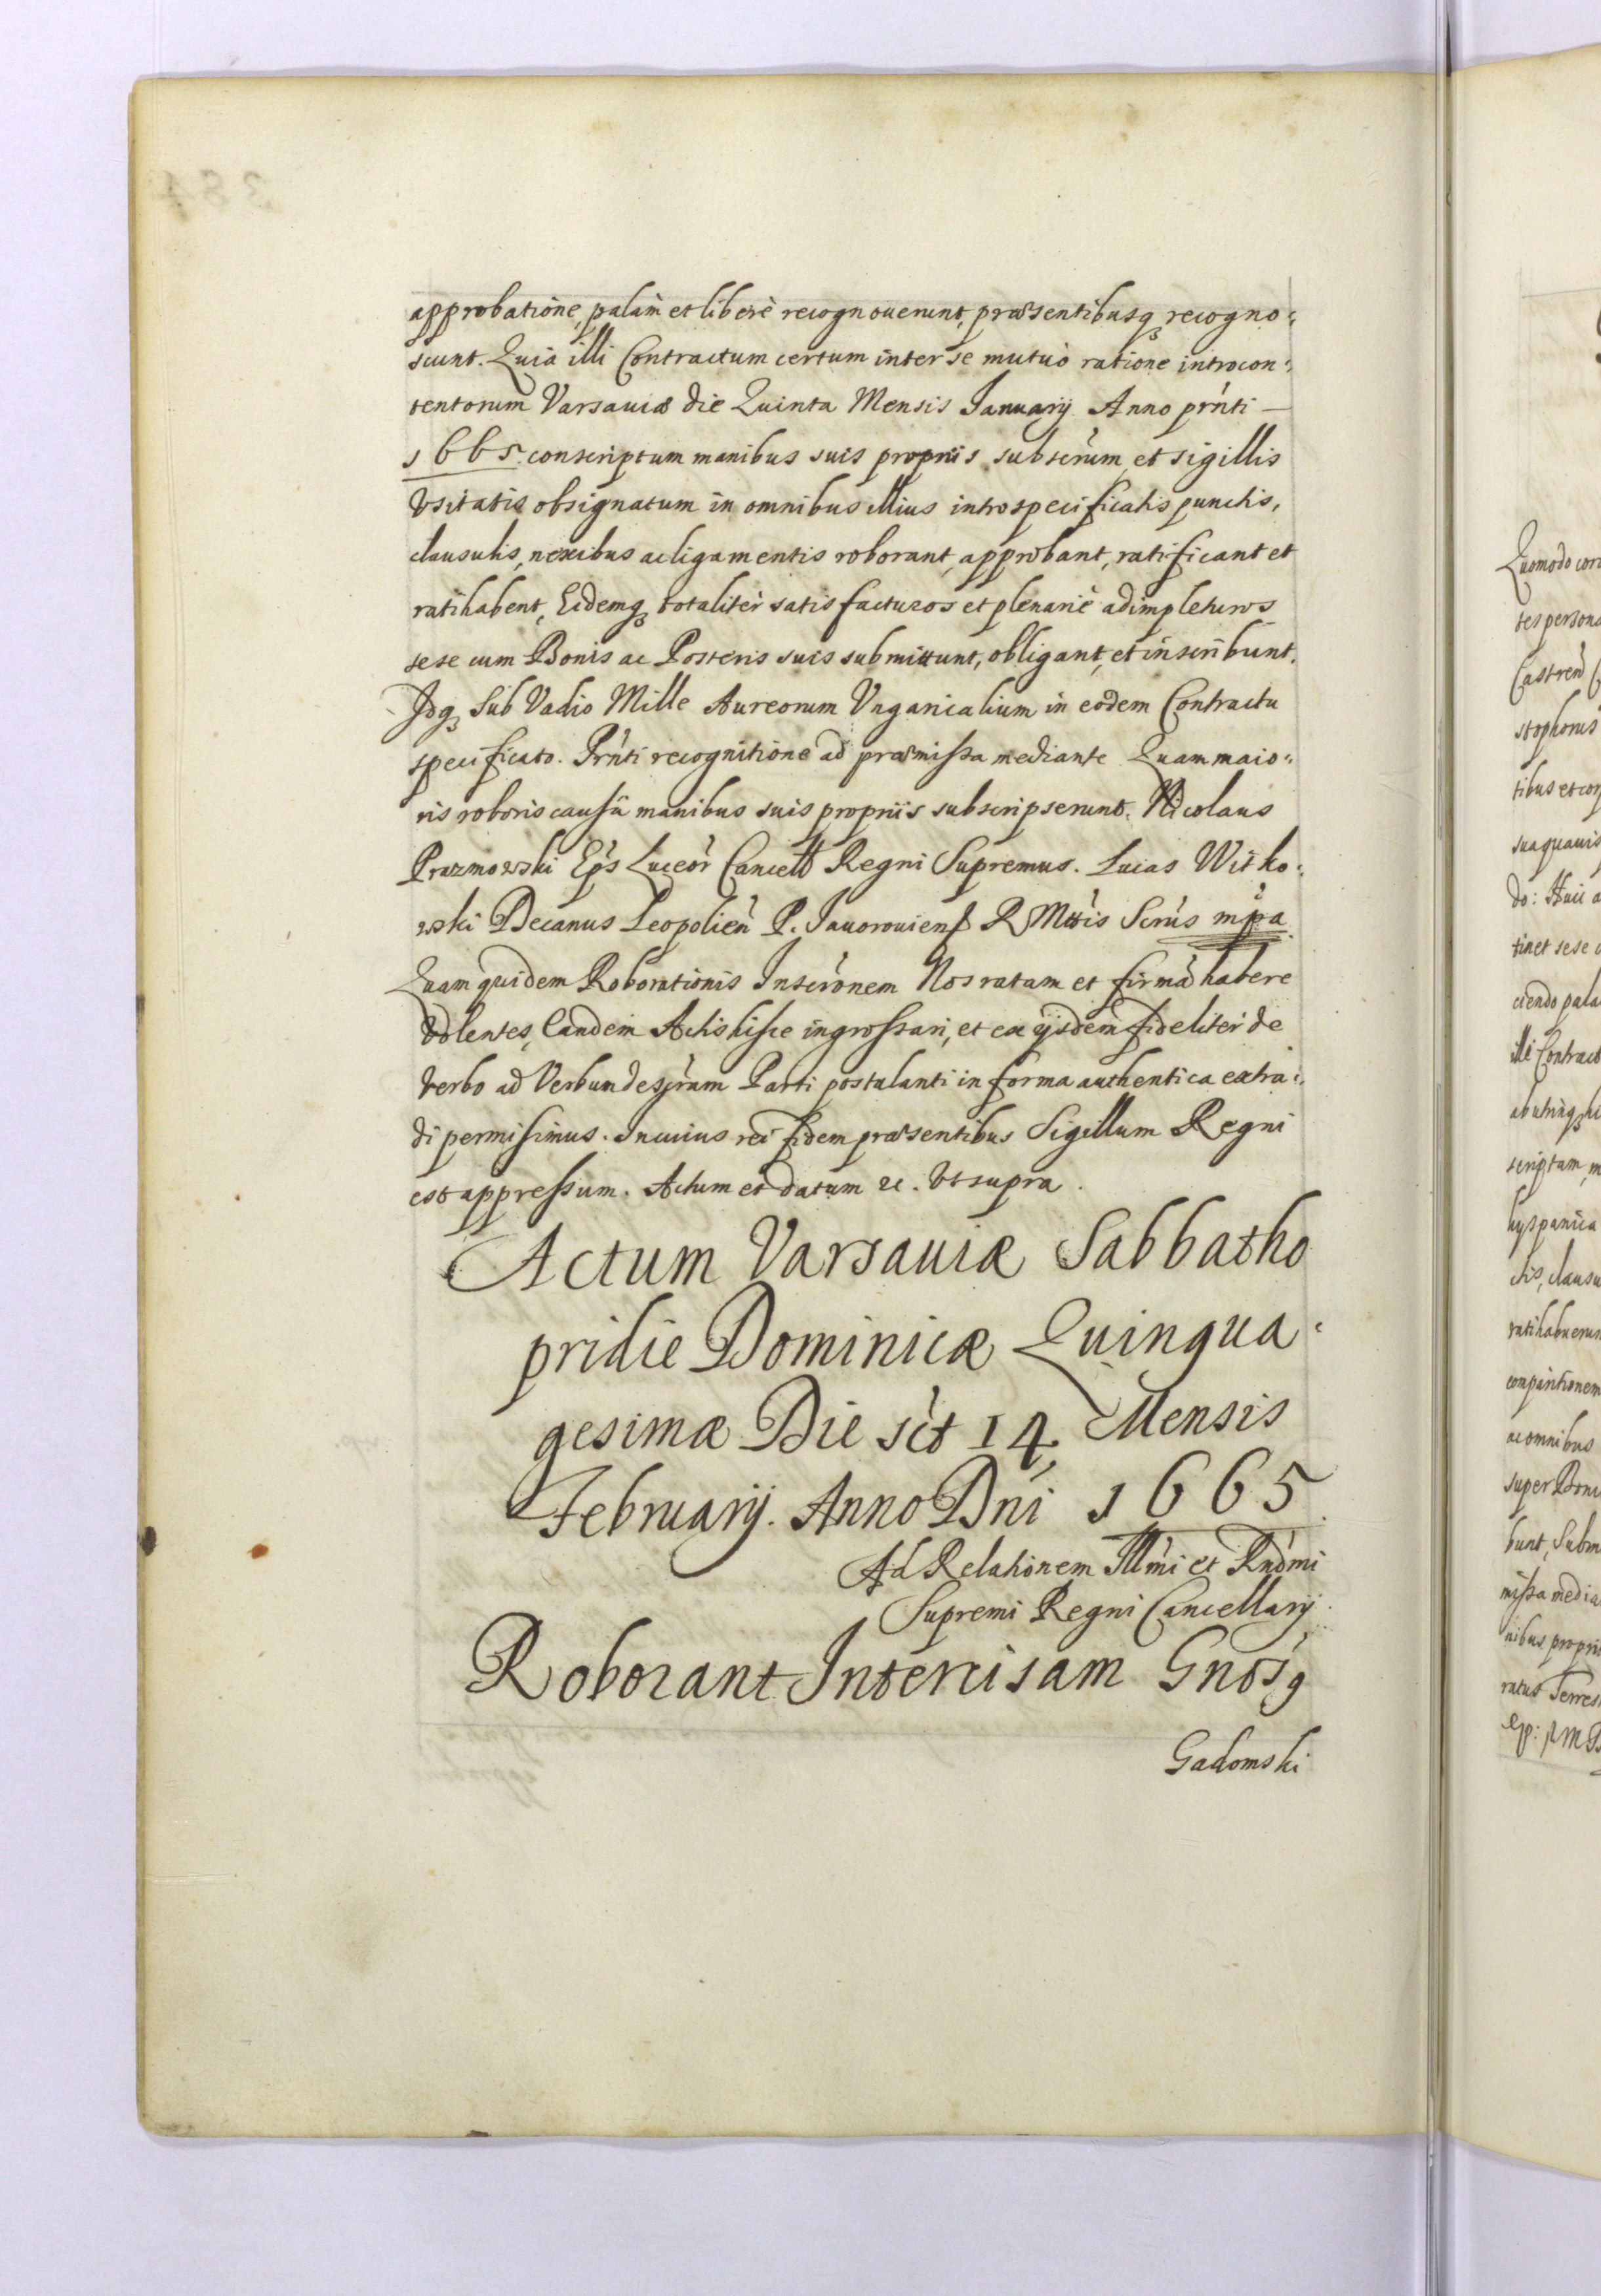 approbatione, palam et liberè recognouerunt, præsentibusq recogno:
scunt. Quia illi Contractum certum inter se mutuò ratione introcon:
tentorum Varsauiæ die Quinta Mensis Januarij Anno prńti
1665. conscriptum manibus suis proprijs subscrum et sigillis
Vsitatis obsignatum in omnibus illius introspecificatis punctis,
clausulis, nexibus ac ligamentis roborant, approbant, ratificant et
ratihabent, Eidemq totalitèr satisfacturos et plenariè adimpleturos
sese cum Bonis ac Posteris suis submittunt, obligant, et inscribunt.
Idq sub Vadio Mille Aureorum Vngaricalium in eodem Contractu
specificato. Prńti recognitione ad præmissa mediante Quam maio:
ris roboris causâ manibus suis proprijs subscripserunt. Nicolaus
Prazmowski Eps Luceor Cancell Regni Supremus. Lucas Witko:
wski Decanus Leopolien P. Jauorouiens R Mttis Scrus mpa
Quam quidem Roborationis Inscronem Nos ratam et firmã habere
Volentes, Eandem Actis hisce ingrossari, et ex ijsdem fideliter de
verbo ad Verbum descram Parti postulanti in forma authentica extra:
di permisimus. In cuius rei fidem præsentibus Sigillum Regni
est appressum. Actum et datum &c. Vt supra.
Actum Varsauiæ Sabbatho
pridie Dominicæ Quinqua:
gesimæ Die sct 14 Mensis
Februarij. Anno Dni 1665.
Ad Relationem Illmi et Rndmi
Supremi Regni Cancellarij
Roborant Intercisam Gnosq
Gadomski
Quomodo cor
tes persona
Castren
stophorus
tibus et cor
sua quauis
do: Huic a
tinet sese c
ciendo pala
illi Contract
ab utrinq hi
scriptum, m
hyspanica
ctis, clausu
ratihabuerun
comparitionem
ac omnibus
super Boni
bunt, Subm
missa media
nibus proprij
ratus Terres